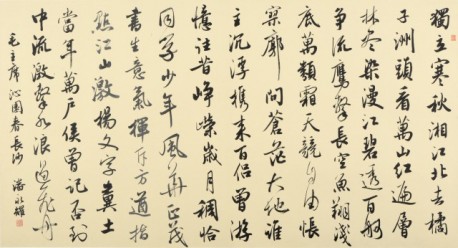 獨立寒秋湘江北去橘
子洲頭看萬山紅遍層
林盡染漫江碧透百舸
争流鷹擊長空魚翔淺
底萬類霜天競自由悵
寥廓問蒼茫大地誰
主沉浮攜來百侣曾游
憶往昔崢嶸歲月稠恰
同學少年風華正茂
書生意氣揮斥方遒指
點江山激揚文字糞土
當年萬户侯曾記否到
中流激擊水浪遏飛舟
毛主席沁園春長沙